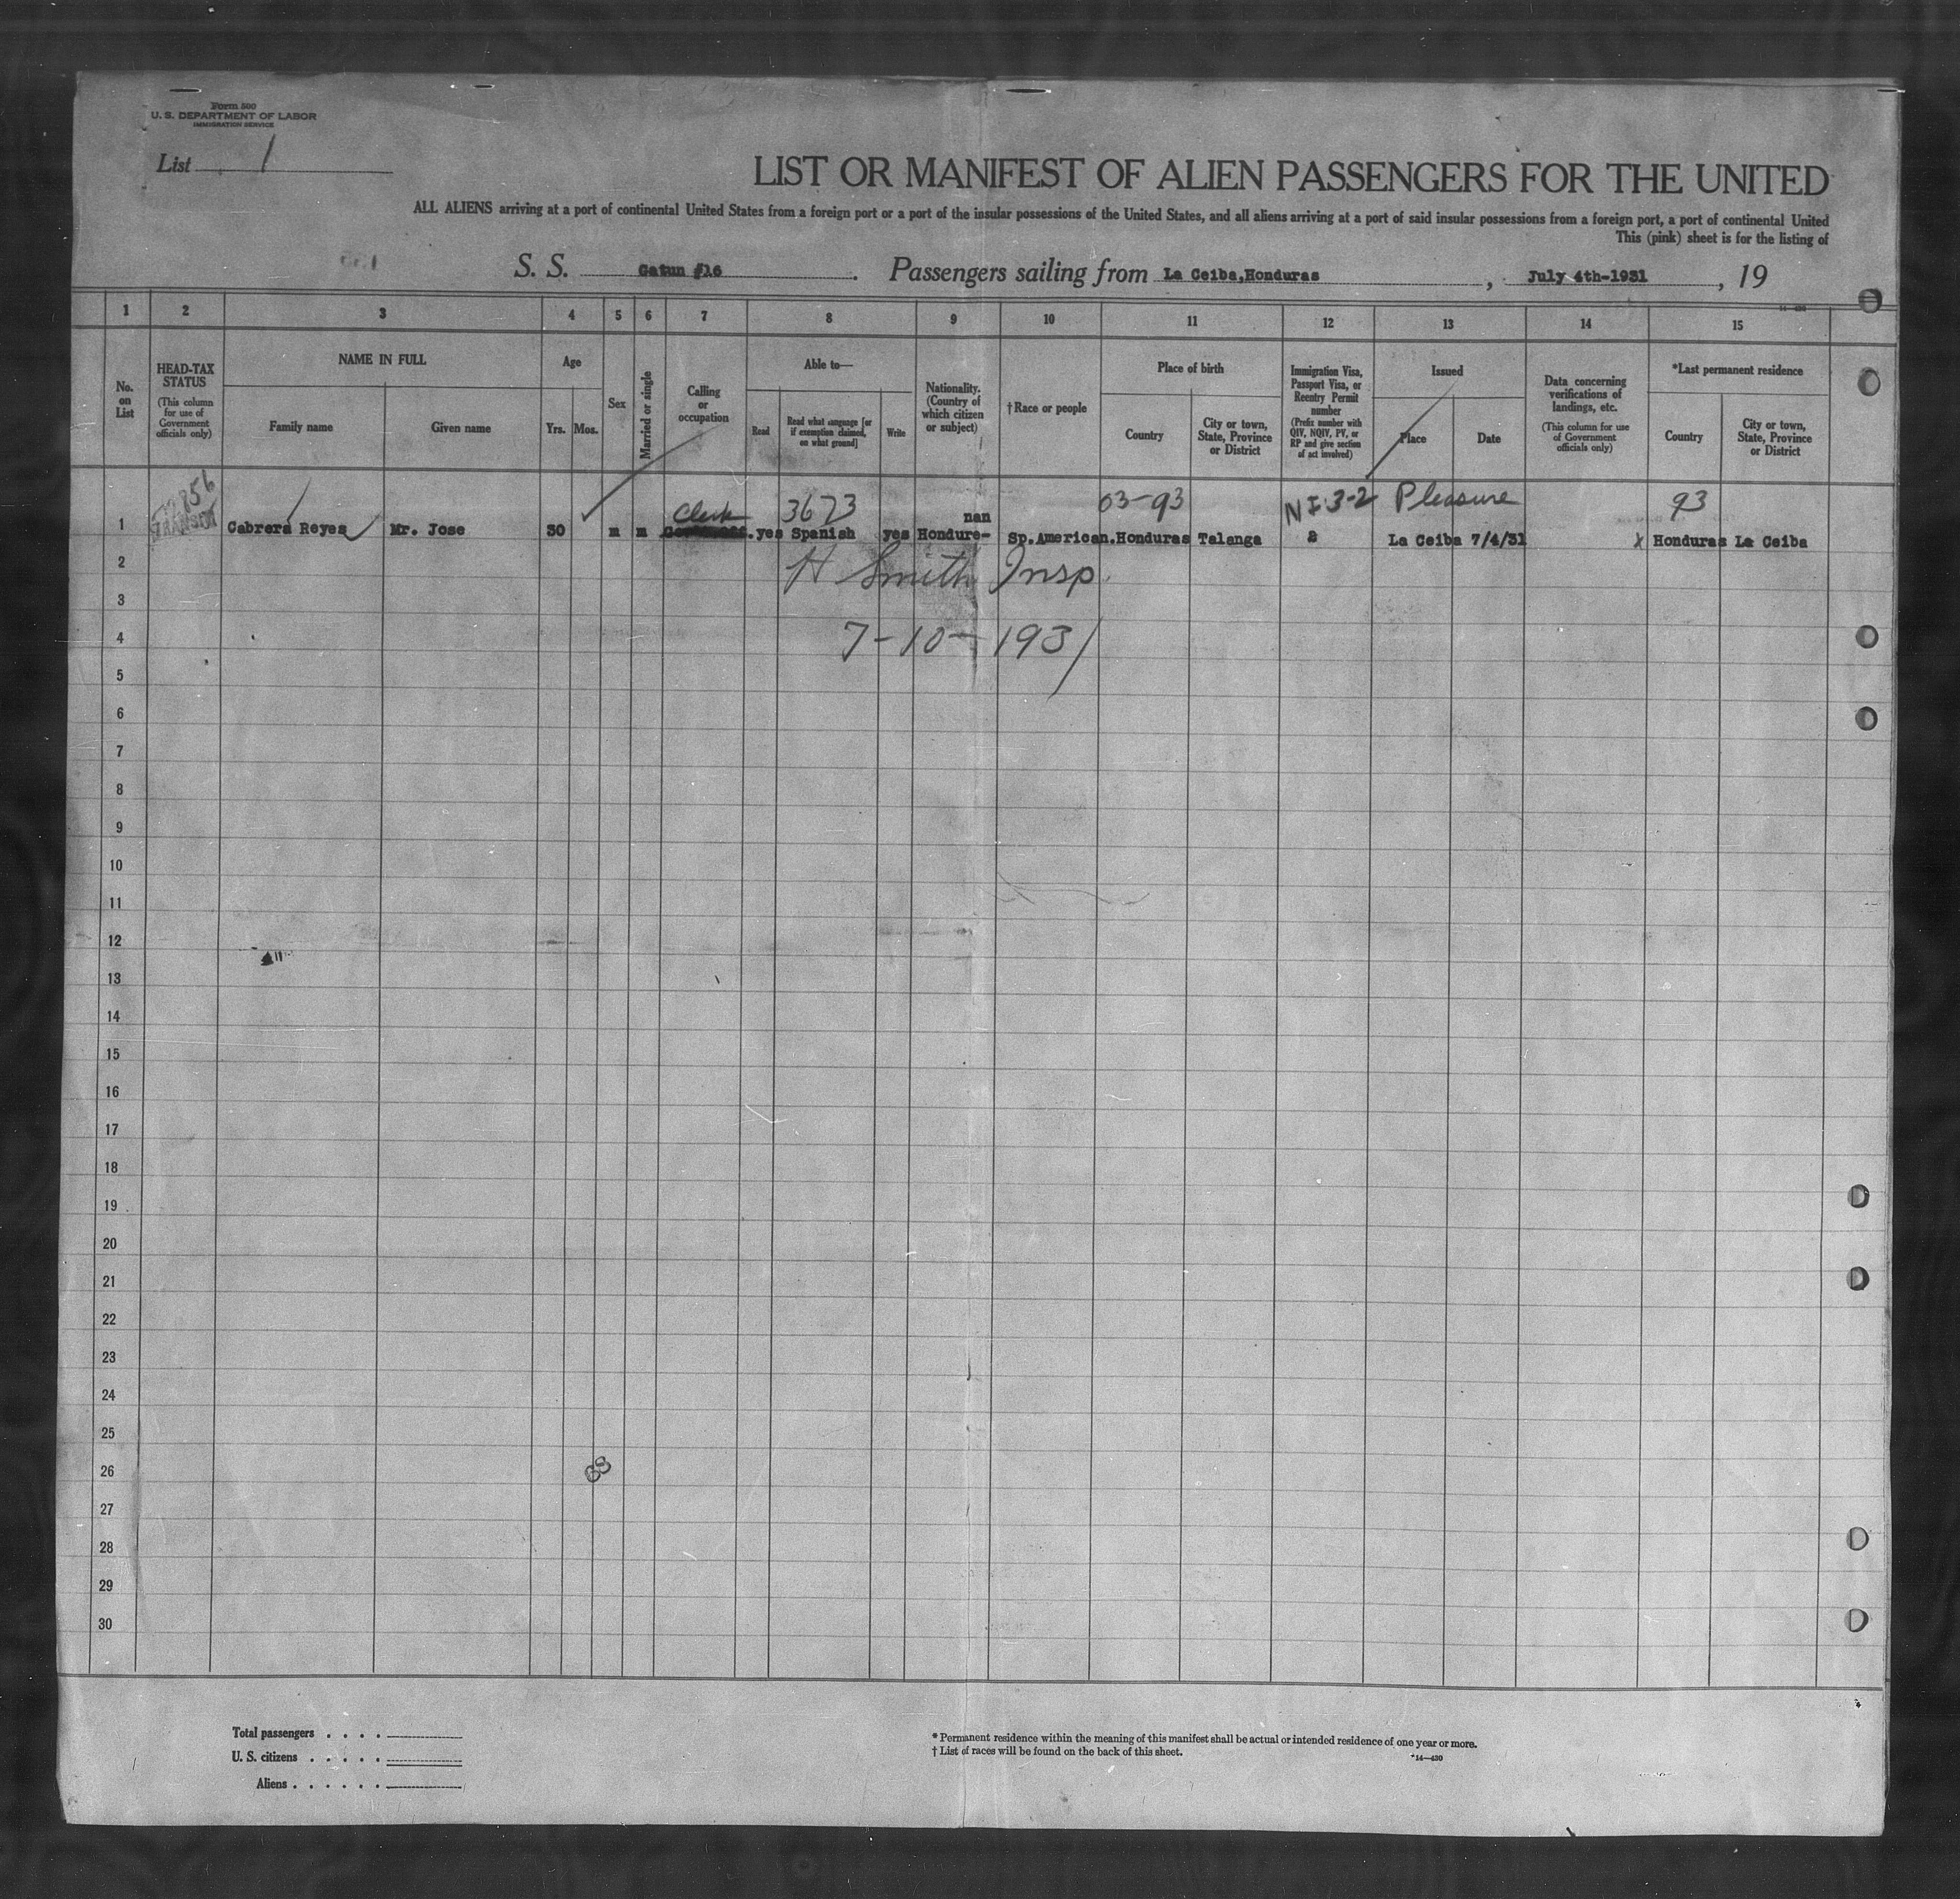 Form 500
U. S. DEPARTMENT OF LABOR
IMMIGRATION SERVICE
List 1
LIST OR MANIFEST OF ALIEN PASSENGERS FOR THE UNITED
ALL ALIENS arriving at a port of continental United States from a foreign port or a port of the insular possessions of the United States, and all aliens arriving at a port of said insular possessions from a foreign port, a port of continental United
This (pink) sheet is for the listing of
S. S. Gatun #16. Passengers sailing from La Ceiba,Honduras, July 4th-1931, 19
1 2 3 4 5 6 7 8 9 10 11 12 13 14 15
No. on List
HEAD-TAX STATUS
(This column for use of Government officials only)
NAME IN FULL
Family name
Given name
Age
Yrs. Mos.
Sex
Married or single
Calling or occupation
Able to—
Read
Read what language [or if exemption claimed, on what ground]
Write
Nationality. (Country of which citizen or subject)
†Race or people
Place of birth
Country
City or town, State, Province or District
Immigration Visa, Passport Visa, or Reentry Permit number
(Prefix number with QIV, NQIV, PV, or RP and give section of act involved)
Issued
Place
Date
Data concerning verifications of landings, etc.
(This column for use of Government officials only)
*Last permanent residence
Country
City or town, State, Province or District
TRANSIT
Clerk 3673 nan 03-93 NI 3-2 Pleasure 93
1 Cabrera Reyes Mr. Jose 30 m m yes Spanish yes Hondure- Sp.American.Honduras Talanga 2 La Ceiba 7/4/31 X Honduras La Ceiba
2 H Smith Insp.
3
4 7-10-1931
5
6
7
8
9
10
11
12
13
14
15
16
17
18
19
20
21
22
23
24
25
26
27
28
29
30
Total passengers . . . .
U. S. citizens . . . . .
Aliens . . . . . .
* Permanent residence within the meaning of this manifest shall be actual or intended residence of one year or more.
† List of races will be found on the back of this sheet.
14—430